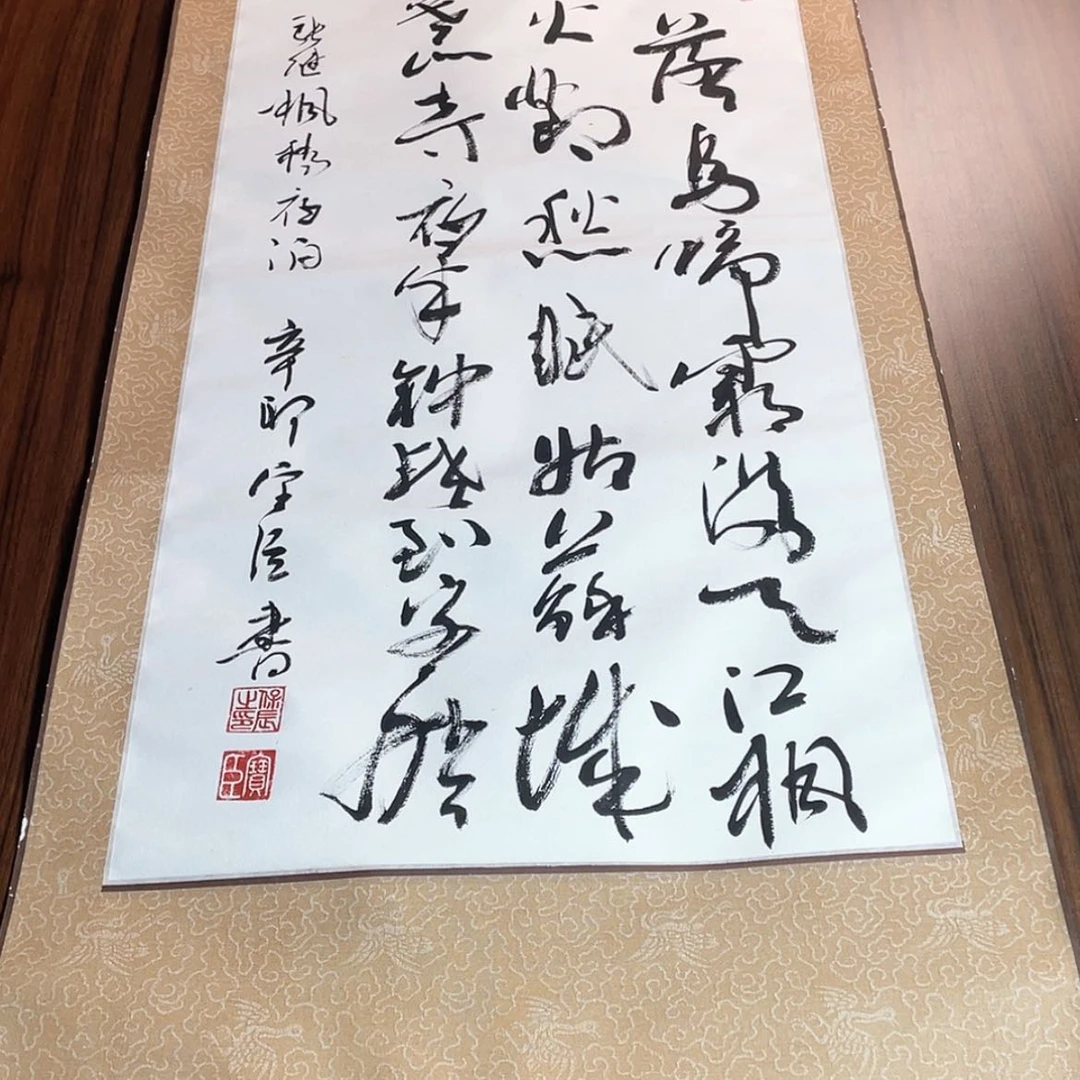 落烏啼霜滿天江楓
火對愁眠姑蘇城
寺夜半鐘聲到客船
張繼楓橋夜泊 辛卯 書